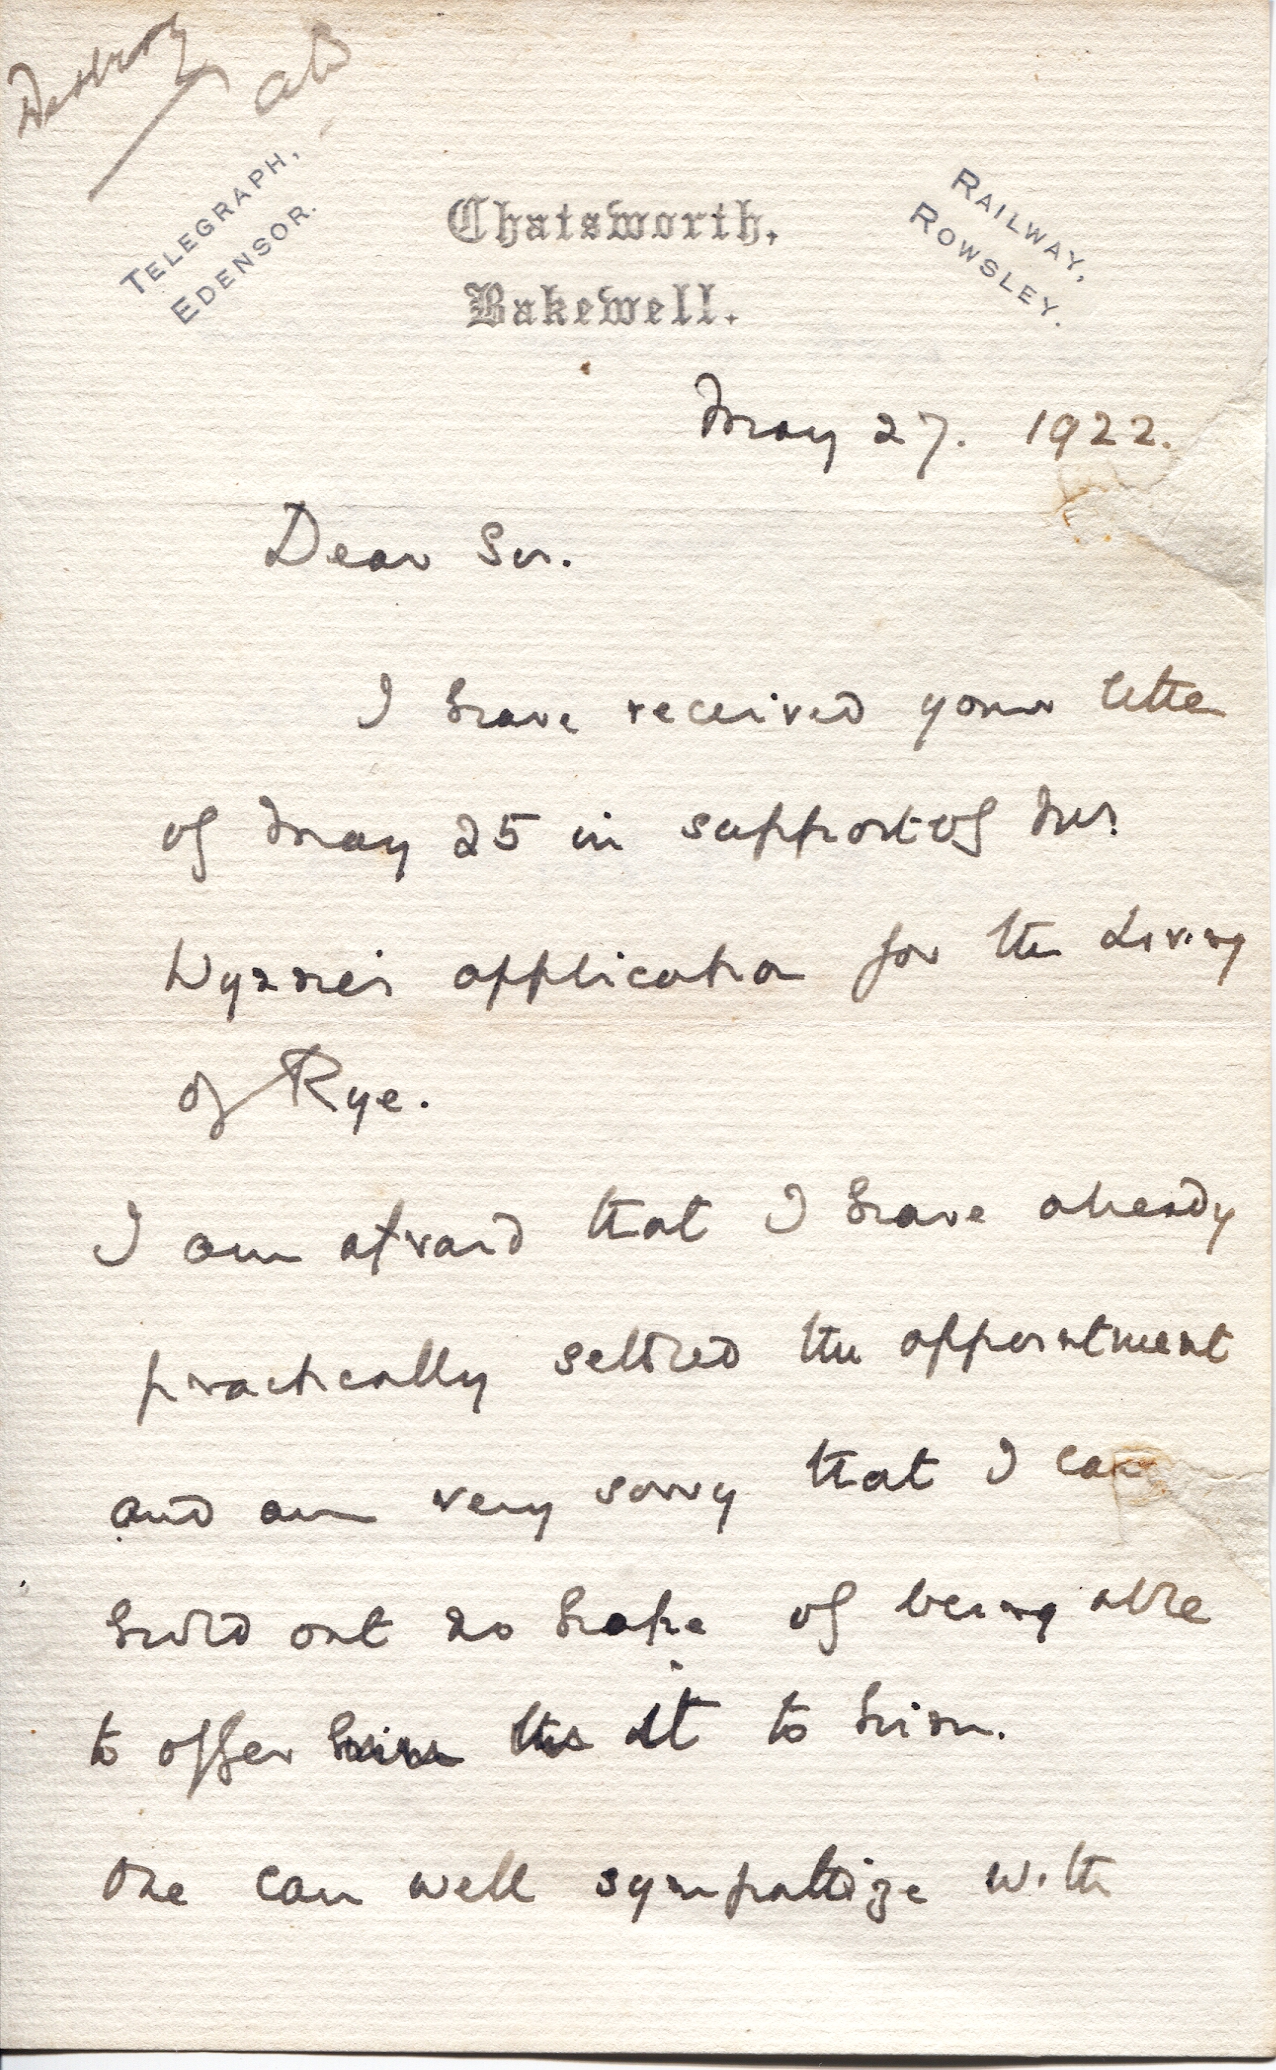 Destroy
TELEGRAPH,
EDENSOR.
Chatsworth.
Bakewell.
RAILWAY,
ROWSLEY.
May 27. 1922.
Dear Sir.
I have received your letter
of May 25 in support of Mr
Wynne's application for the Living
of Rye.
I am afraid that I have already
practically settled the appointment
and am very sorry that I can
hold out no hope of being able
to offer him it to him.
One can well sympathize with